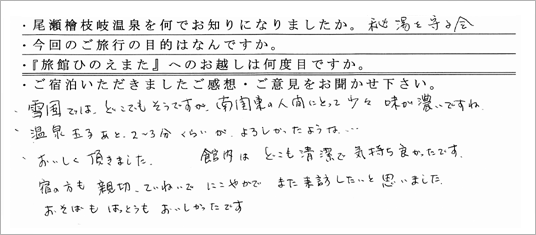 ・尾瀬檜枝岐温泉を何でお知りになりましたか。 秘湯を守る会
・今回のご旅行の目的はなんですか。
・『旅館ひのえまた』へのお越しは何度目ですか。
・ご宿泊いただきましたご感想・ご意見をお聞かせ下さい。
・雪国では、どこでもそうですが、南関東の人間にとって少々 味が濃いですね。
・温泉玉子あと、2〜3分くらいが、よろしかったような…
・おいしく頂きました。 館内は どこも清潔で気持ち良かったです。
宿の方も 親切、ていねいで にこやかで また来訪したいと思いました。
おそばも はっとうも おいしかったです